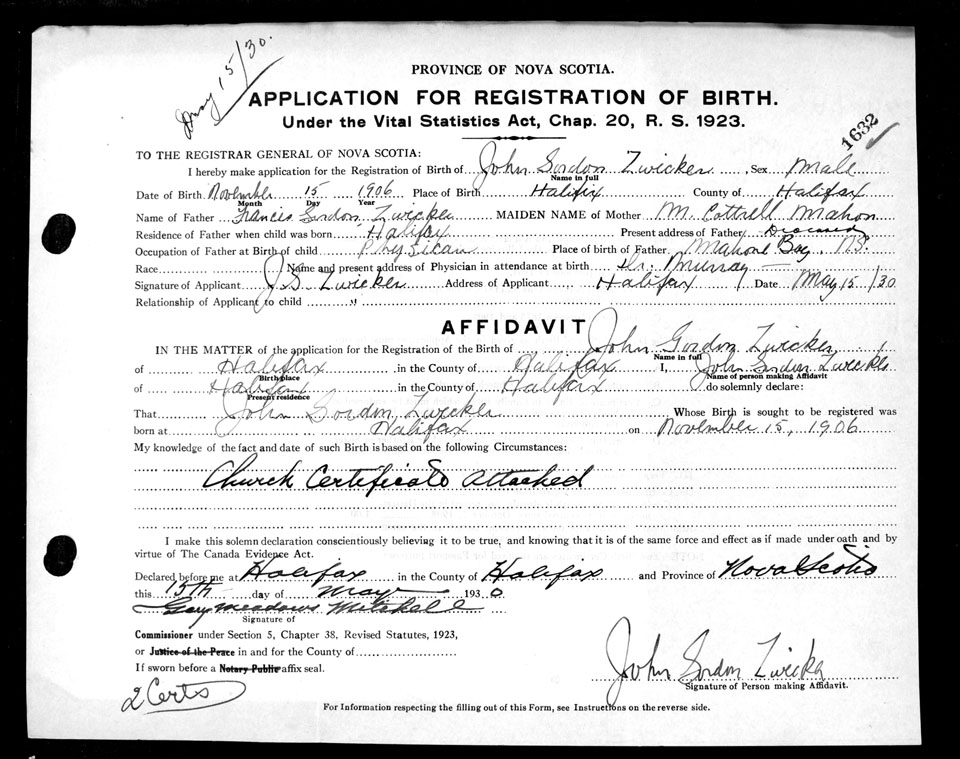 May 15/30.
PROVINCE OF NOVA SCOTIA.
APPLICATION FOR REGISTRATION OF BIRTH.
Under the Vital Statistics Act, Chap. 20, R. S. 1923.
1632
TO THE REGISTRAR GENERAL OF NOVA SCOTIA:
I hereby make application for the Registration of Birth of John Gordon Zwicker Sex Male
Name in full
Date of Birth November 15 1906 Place of Birth Halifix County of Halifax
Month Day Year
Name of Father Frances Gordon Zwicker MAIDEN NAME of Mother M. Cottrell Mahon
Residence of Father when child was born Halifax Present address of Father Deceased
Occupation of Father at Birth of child Physician Place of birth of Father Mahone Bay, N.S.
Race Name and present address of Physician in attendance at birth Dr. Murray
Signature of Applicant J G Zwicker Address of Applicant Halifax Date May 15/30
Relationship of Applicant to child "
AFFIDAVIT
IN THE MATTER of the application for the Registration of the Birth of John Gordon Zwicker
Name in full
of Halifax in the County of Halifax I, John Gordon Zwicker
Birthplace Name of person making Affidavit
of Halifax in the County of Halifax do solemnly declare:
Present residence
That John Gordon Zwicker Whose Birth is sought to be registered was
born at Halifax on November 15, 1906
My knowledge of the fact and date of such Birth is based on the following Circumstances:
Church Certificate Attached
I make this solemn declaration conscientiously believing it to be true, and knowing that it is of the same force and effect as if made under oath and by
virtue of The Canada Evidence Act.
Declared before me at Halifax in the County of Halifax and Province of Nova Scotia
this 15th day of May 1930
Meadows Mitchell
Signature of
Commissioner under Section 5, Chapter 38, Revised Statutes, 1923,
or Justice of the Peace in and for the County of
If sworn before a Notary Public affix seal.
John Gordon Zwicker
Signature of Person making Affidavit.
2 Certs
For Information respecting the filling out of this Form, see Instructions on the reverse side.